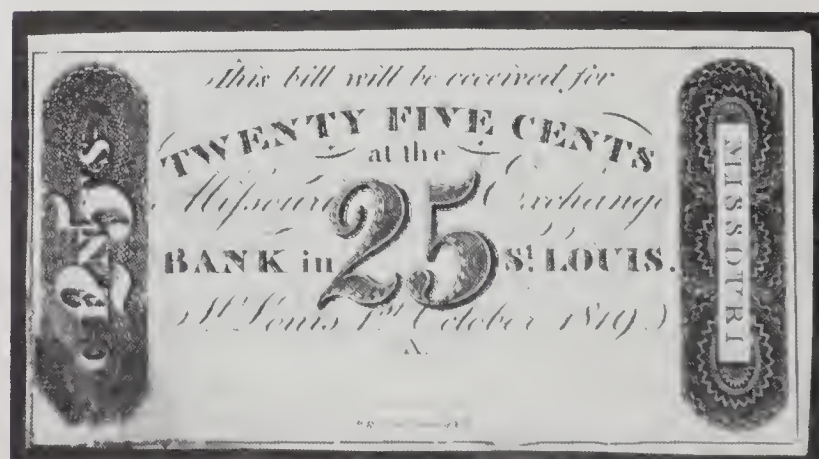 This bill will be received for
TWENTY FIVE CENTS
at the
Missouri Exchange
25
BANK in St. LOUIS.
St. Louis 1st October 1819
A.
MISSOURI